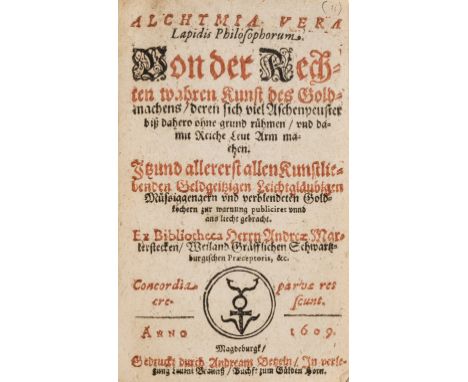 (11)
ALCHYMIA VERA
Lapidis Philosophorum.
Von der Rech-
ten wahren Kunst des Gold-
machens / deren sich viel Aschenpeuster
biß dahero ohne grund rühmen / vnd da-
mit Reiche Leut Arm ma-
chen.
Itzund allererst allen Kunstlie-
benden Geldgeitzigen Leichtgläubigen
Müssiggengern vnd verblendeten Gold-
köchern zur warnung publiciret vnnd
ans liecht gebracht.
Ex Bibliotheca Herrn Andreæ Mar-
ckerstecken / Weiland Gräfflichen Schwartz-
burgischen Præceptoris, &c.
Concordia parvæ res
cre- scunt.
ANNO 1609.
Magdeburgk /
Gedruckt durch Andream Betzeln / In verle-
gung Braunß / Buchf: zum Gülden Horn.